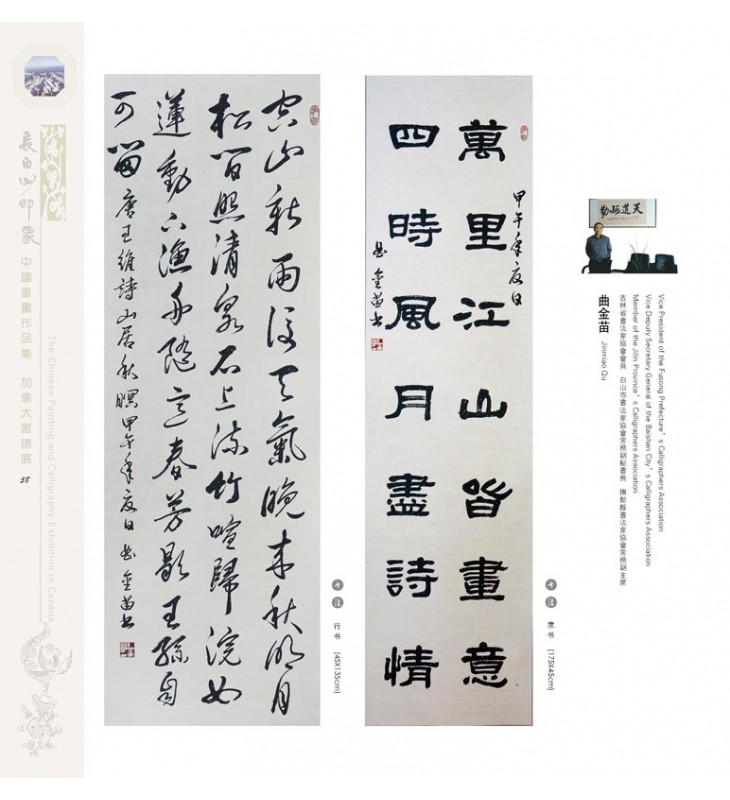 長白山印象
中國書畫作品集 加拿大邀請展 58
The Chinese Painting and Calligraphy Exhibition in Canada
空山新雨後天氣晚來秋明月
松間照清泉石上流竹喧歸浣女
蓮動下漁舟隨意春芳歇王孫自
可留 唐王維詩山居秋暝甲午年夏日曲金苗书
书法 行书 (45X135cm)
萬里江山皆畫意
四時風月盡詩情
甲午年夏日
曲金苗书
书法 隶书 (175X45cm)
天道酬勤
曲金苗 Jinmiao Qu
Vice President of the Fusong Prefecture's Calligraphers Association
Vice Deputy Secretary General of the Baishan City's Calligraphers Association
Member of the Jilin Province's Calligraphers Association
吉林省書法家協會會員 白山市書法家協會常務副秘書長 撫松縣書法家協會常務副主席